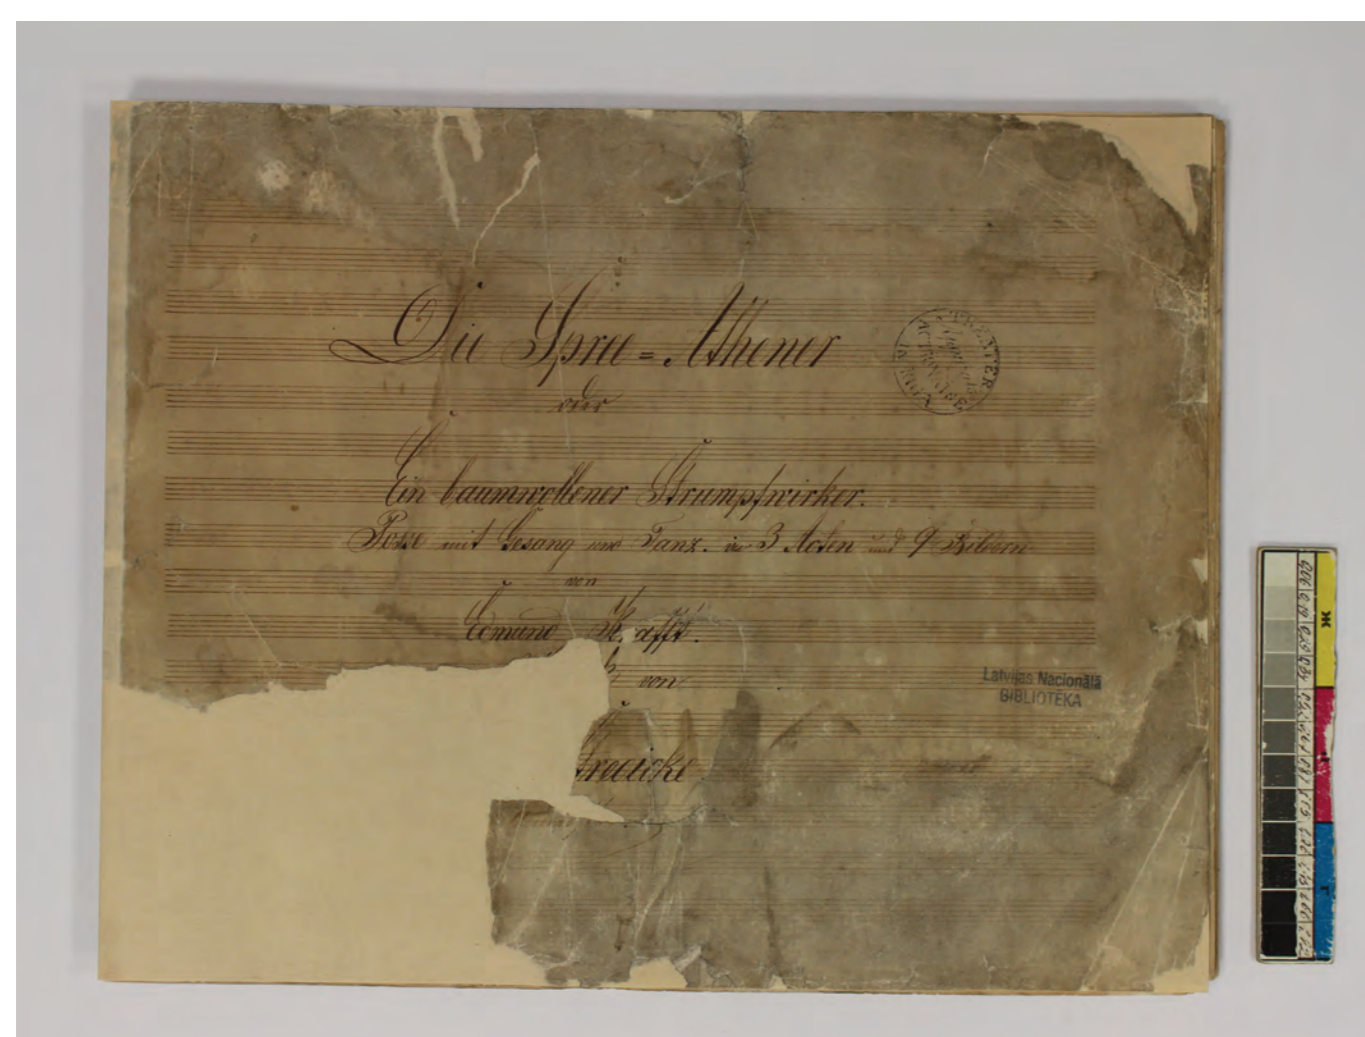 Die Spree=Athener
oder
Ein baumwollener Strumpfwirker.
Posse mit Gesang und Tanz. in 3 Acten und 9 Bildern
von
Edmund Krafft.
von
THEATER
ACTIONAIRE
Latvijas Nacionālā
BIBLIOTĒKA